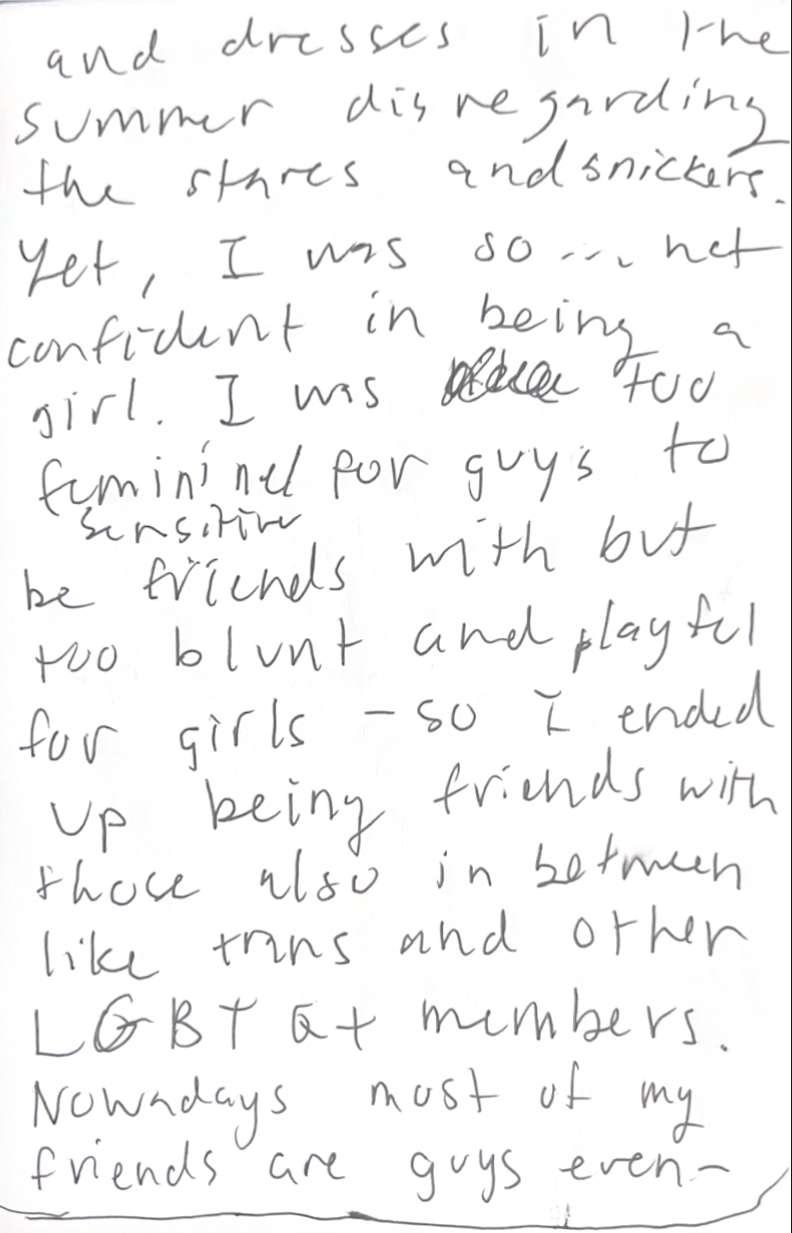 and dresses in the
summer disregarding
the stares and snickers.
Yet, I was so .... not
confident in being a
girl. I was too
feminine for guys to
sensitive
be friends with but
too blunt and playful
for girls - so I ended
up being friends with
those also in between
like trans and other
LGBTQ+ members.
Nowadays most of my
friends are guys even-